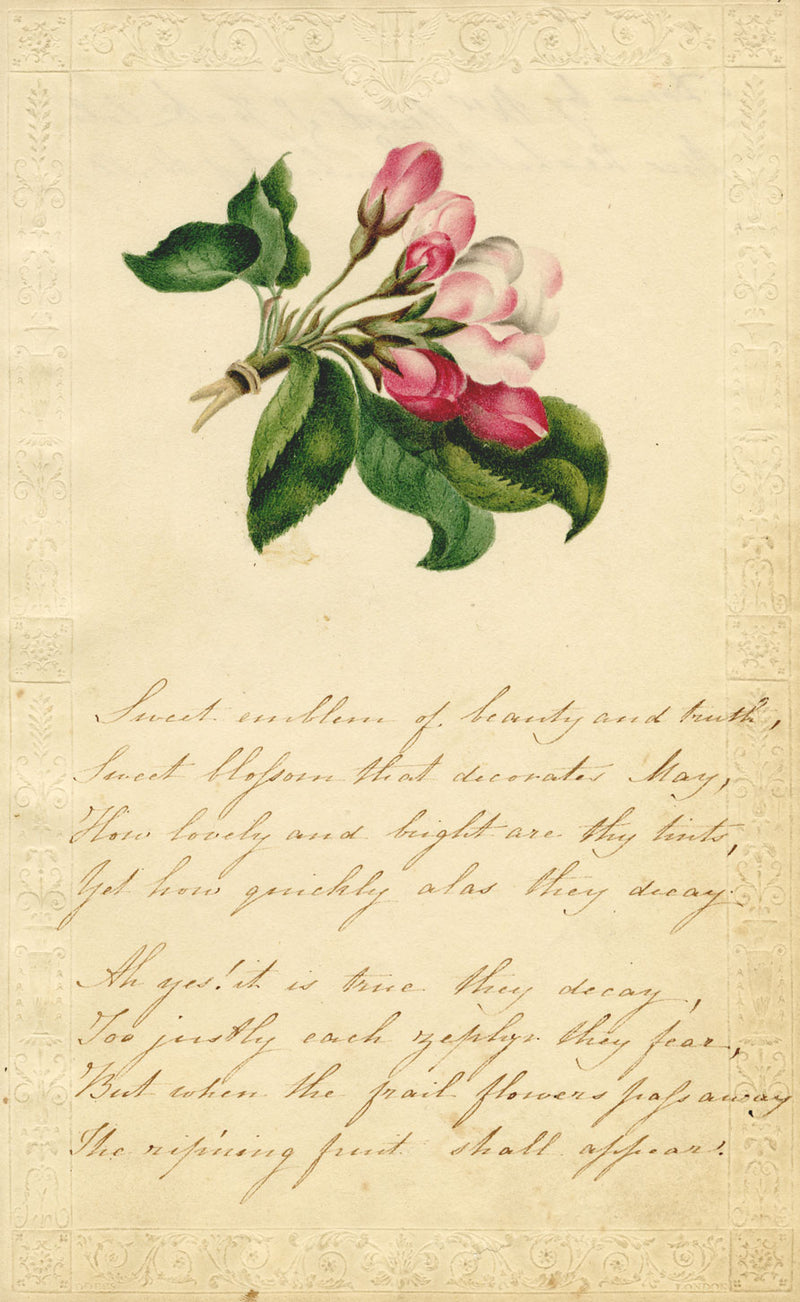 Sweet emblem of beauty and truth,
Sweet bloſsom that decorates May,
How lovely and bright are thy tints,
Yet how quickly alas they decay.
Ah yes! it is true they decay,
Too justly each zephyr they fear,
But when the frail flowers paſs away
The rip'ning fruit shall appear.
DOBBS LONDON